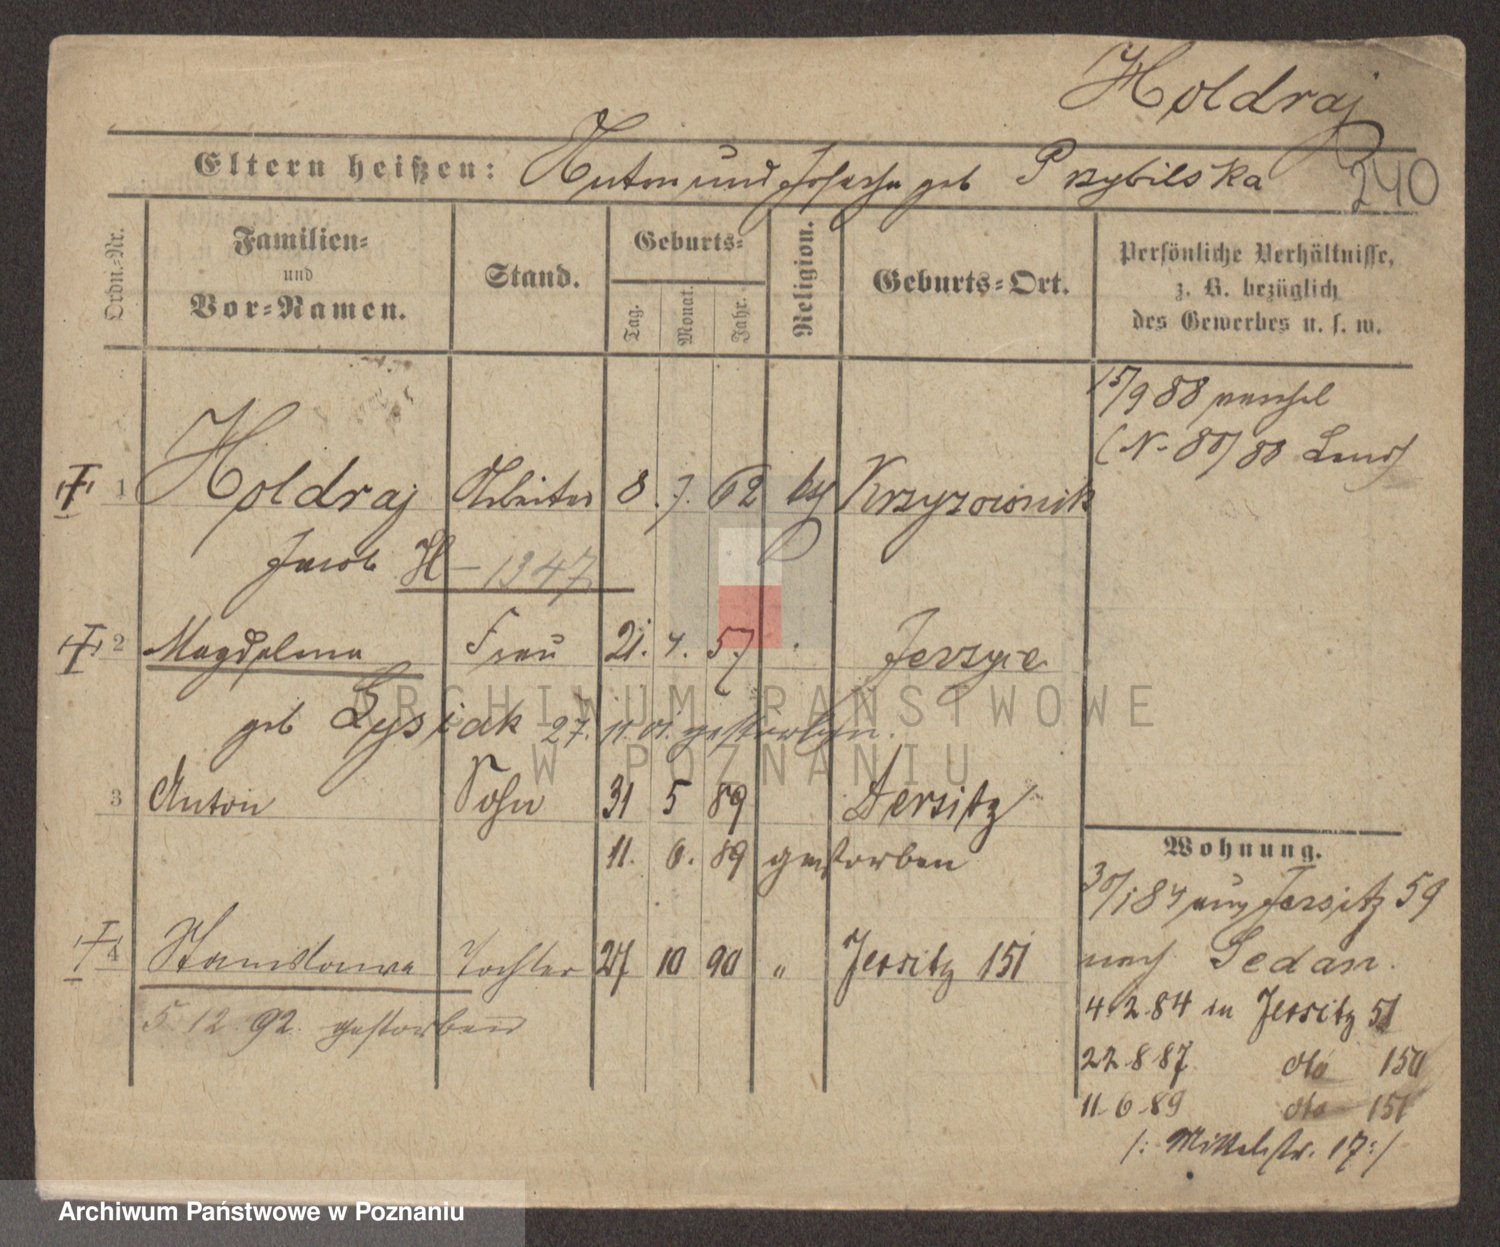 Holdraj
Eltern heißen: Anton und Josepha geb Przybilska
240
Ordn.-Nr.
Familien-
und
Vor-Namen.
Stand.
Geburts-
Tag.
Monat.
Jahr.
Religion.
Geburts-Ort.
Persönliche Verhältnisse,
z. B. bezüglich
des Gewerbes u. s. w.
15/9 88
(N- 80/88
1 Holdraj Arbeiter 8. 7. 62 Krzyzownik
Jacob H - 1347
2 Magdalena Frau 21. 57 Jerzyce
geb Lysiak 27. 11. 01. gestorben.
3 Anton Sohn 31 5 89 Jersitz
11. 6. 89 gestorben
4 Stanislawa Tochter 27 10 90 " Jersitz 151
5 12 92. gestorben
Wohnung.
Jersitz 59
nach Sedan.
4.2.84 in Jersitz 51
22.8.87 dto 150
11.6.89 dto 151
/: Mittelstr. 17 :/
ARCHIWUM PAŃSTWOWE
W POZNANIU
Archiwum Państwowe w Poznaniu